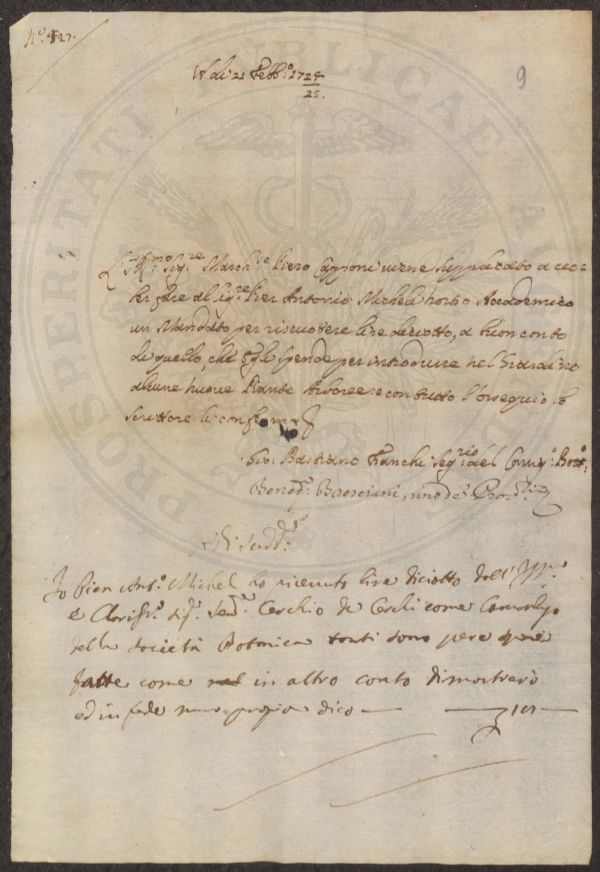 N.º 427.
9
A dì 21 Febb.º 1724/25.
L'Ill.mo Sig.re March.se Piero Capponi viene supplicato a coc=
 fare al Sig.re Pier Antonio Micheli nostro Accademico
un Mandato per riscuotere lire diciotto, a buon conto
di quello, che egli spende per introdurre nel Giardino
alcune nuove Piante Arboree: e con tutto l'ossequio lo
scrittore si conferma
Gio: Bastiano Franchi Seg.rio del Conv.º Bott.º
Bened.º Bresciani, uno de'
A dì sud.º
Io Pier Ant.º Micheli ho ricevuto lire diciotto dall' Ill.º
e Clariss.º Sig.º Sen.º Cerchio de Cerchi come
della Società Botanica tanti sono per spese
fatte come in altro conto dimostrerò
ed in fede mano propria dico — — 18 —
PROSPERITATI PUBLICAE AUGENDAE